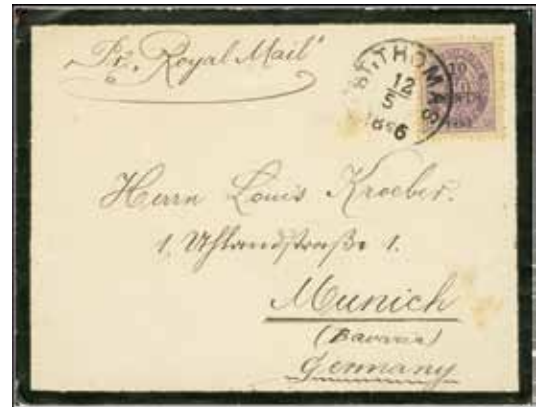 "Pr. Royal Mail"
ST. THOMAS
12
5
1896
10
CENTS
Herrn Louis Kroeber.
1, Uhlandstraße 1.
Munich
(Bavaria)
Germany